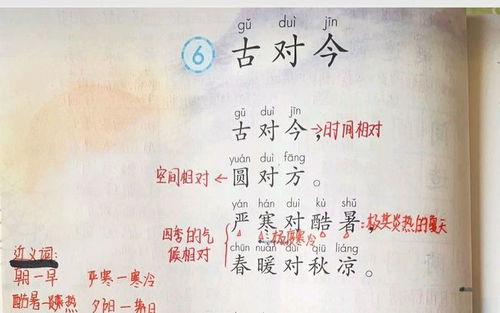 gǔ duì jīn
6 古对今
gǔ duì jīn
古对今，→时间相对
yuán duì fāng
空间相对←圆对方。
yán hán duì kù shǔ
严寒对酷暑，：极其炎热的夏天
四季的气
候相对
极度寒冷
chūn nuǎn duì qiū liáng
春暖对秋凉。
近义词：
朝—早 严寒—寒冷
酷暑—炎热 夕阳—